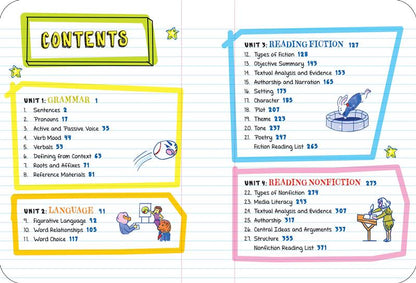 CONTENTS
UNIT 1: GRAMMAR 1
1. Sentences 2
2. Pronouns 17
3. Active and Passive Voice 35
4. Verb Mood 49
5. Verbals 53
6. Defining from Context 63
7. Roots and Affixes 71
8. Reference Materials 81
UNIT 2: LANGUAGE 91
9. Figurative Language 92
10. Word Relationships 105
11. Word Choice 117
UNIT 3: READING FICTION 127
12. Types of Fiction 128
13. Objective Summary 143
14. Textual Analysis and Evidence 153
15. Authorship and Narration 165
16. Setting 173
17. Character 185
18. Plot 207
19. Theme 223
20. Tone 237
21. Poetry 247
Fiction Reading List 265
UNIT 4: READING NONFICTION 273
22. Types of Nonfiction 274
23. Media Literacy 293
24. Textual Analysis and Evidence 307
25. Authorship 317
26. Central Ideas and Arguments 337
27. Structure 355
Nonfiction Reading List 371